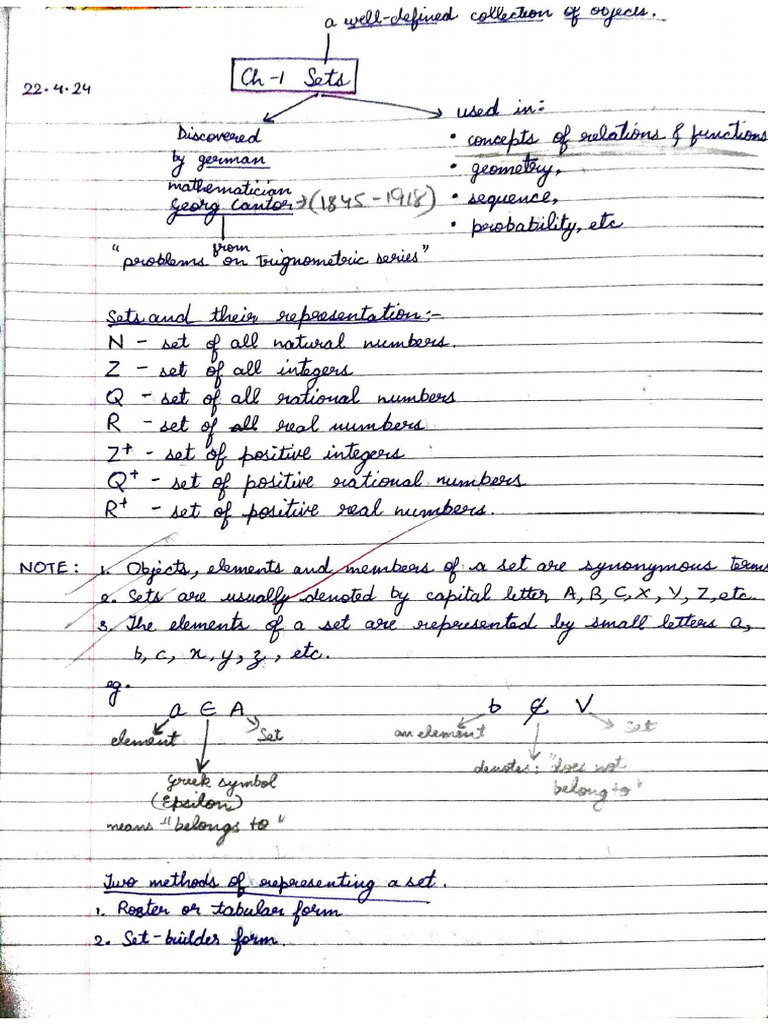 a well-defined collection of objects.
22.4.24
Ch-1 Sets
Discovered
by german
mathematician
Georg Cantor → (1845-1918)
from
"problems on trignometric series"
used in:
• concepts of relations & functions
• geometry,
• sequence,
• probability, etc
Sets and their representation:-
N - set of all natural numbers.
Z - set of all integers
Q - set of all rational numbers
R - set of all real numbers
Z+ - set of positive integers
Q+ - set of positive rational numbers
R+ - set of positive real numbers.
NOTE: 1. Objects, elements and members of a set are synonymous terms
2. Sets are usually denoted by capital letter A, B, C, X, Y, Z, etc.
3. The elements of a set are represented by small letters a,
b, c, x, y, z, etc.
eg.
a ∈ A
element
Set
Greek symbol
(Epsilon)
means "belongs to"
b ∉ V
an element
Set
denotes: "does not
belong to"
Two methods of representing a set.
1. Roster or tabular form
2. Set-builder form.